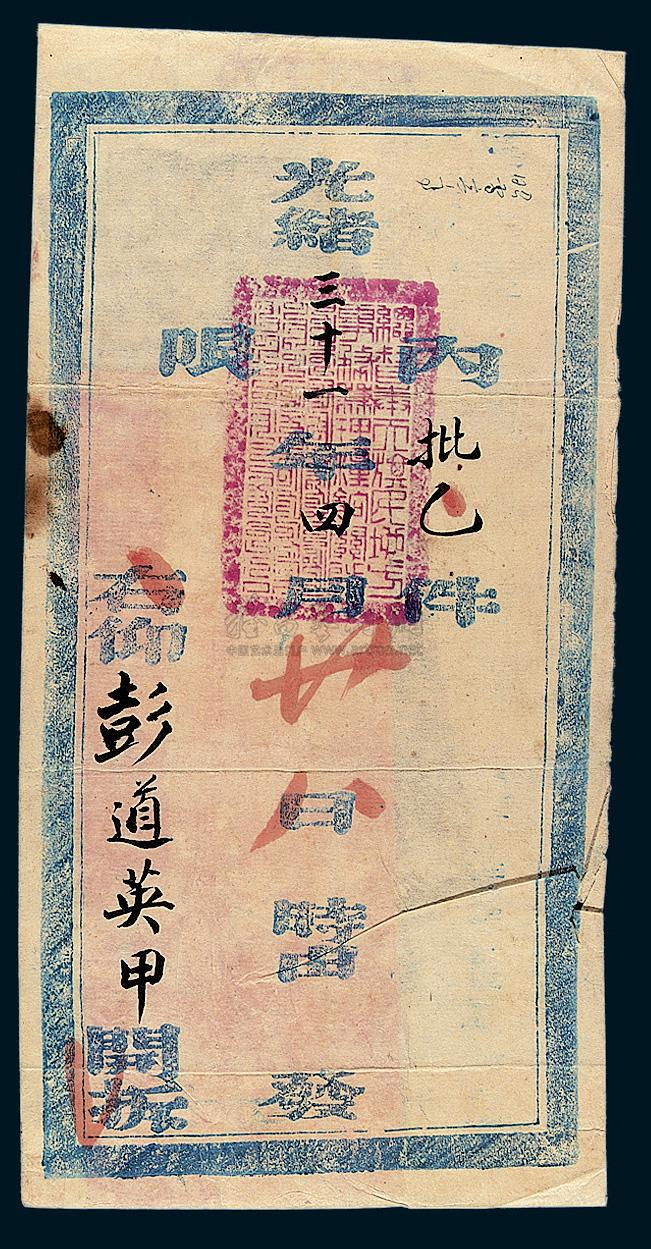 內批乙件
光緒三十一年四月廿八日時由發
限
右仰彭道英甲開拆